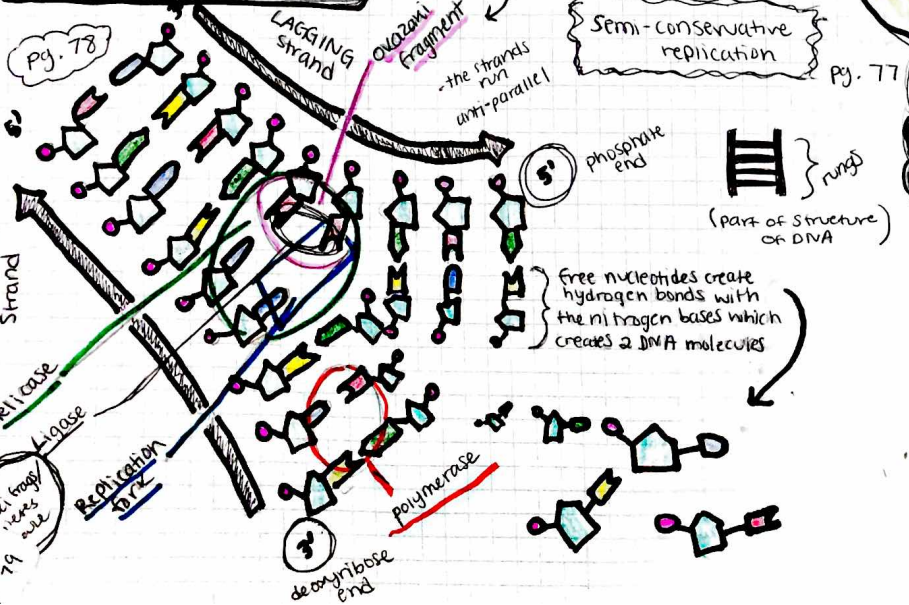 pg. 78
LAGGING
Strand
Okazaki
fragment
-the strands
run
anti-parallel
Semi-conservative
replication
pg. 77
5'
phosphate
end
rungs
(part of structure
of DNA)
free nucleotides create
hydrogen bonds with
the nitrogen bases which
creates 2 DNA molecules
Strand
Ligase
Replication
fork
polymerase
3'
deoxyribose
end